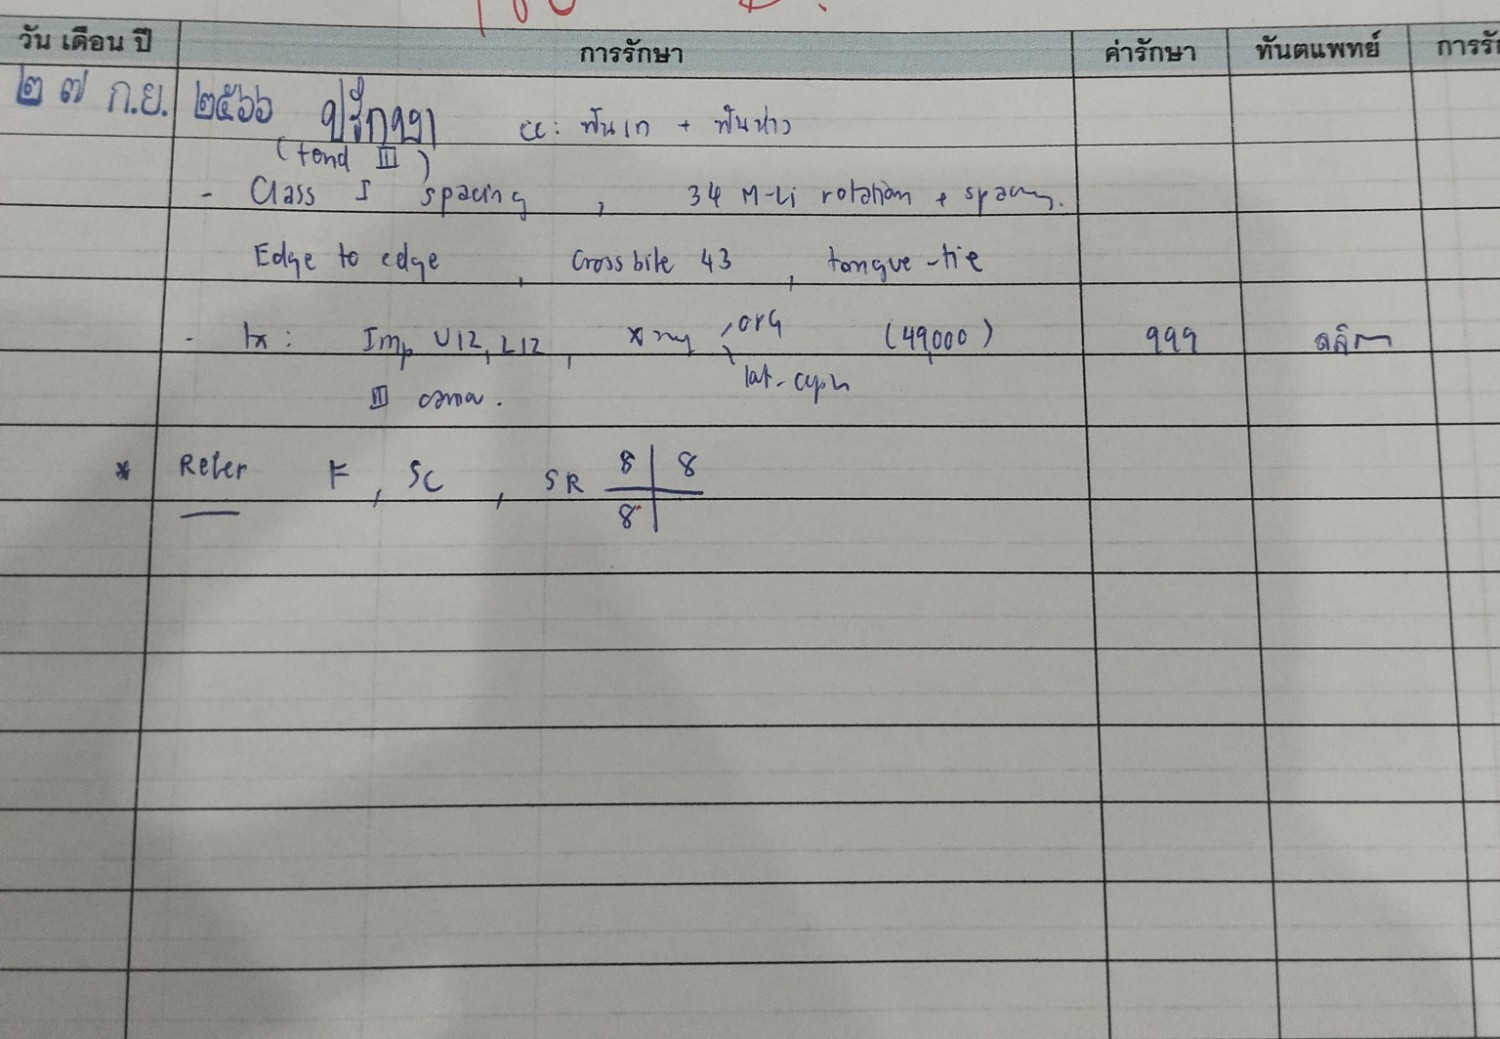 วัน เดือน ปี การรักษา ค่ารักษา ทันตแพทย์ การรั
๒๗ ก.ย. ๒๕๖๖ ปรึกษา cc: ฟันเก + ฟันห่าง
(tend III)
- Class I spacing , 34 M-Li rotation + spacing.
Edge to edge , Crossbite 43 , tongue-tie
- tx: Imp U12, L12, x-ray OPG (49,000) 999
lat. ceph
III
* Refer F, SC, SR 8 | 8
8 |